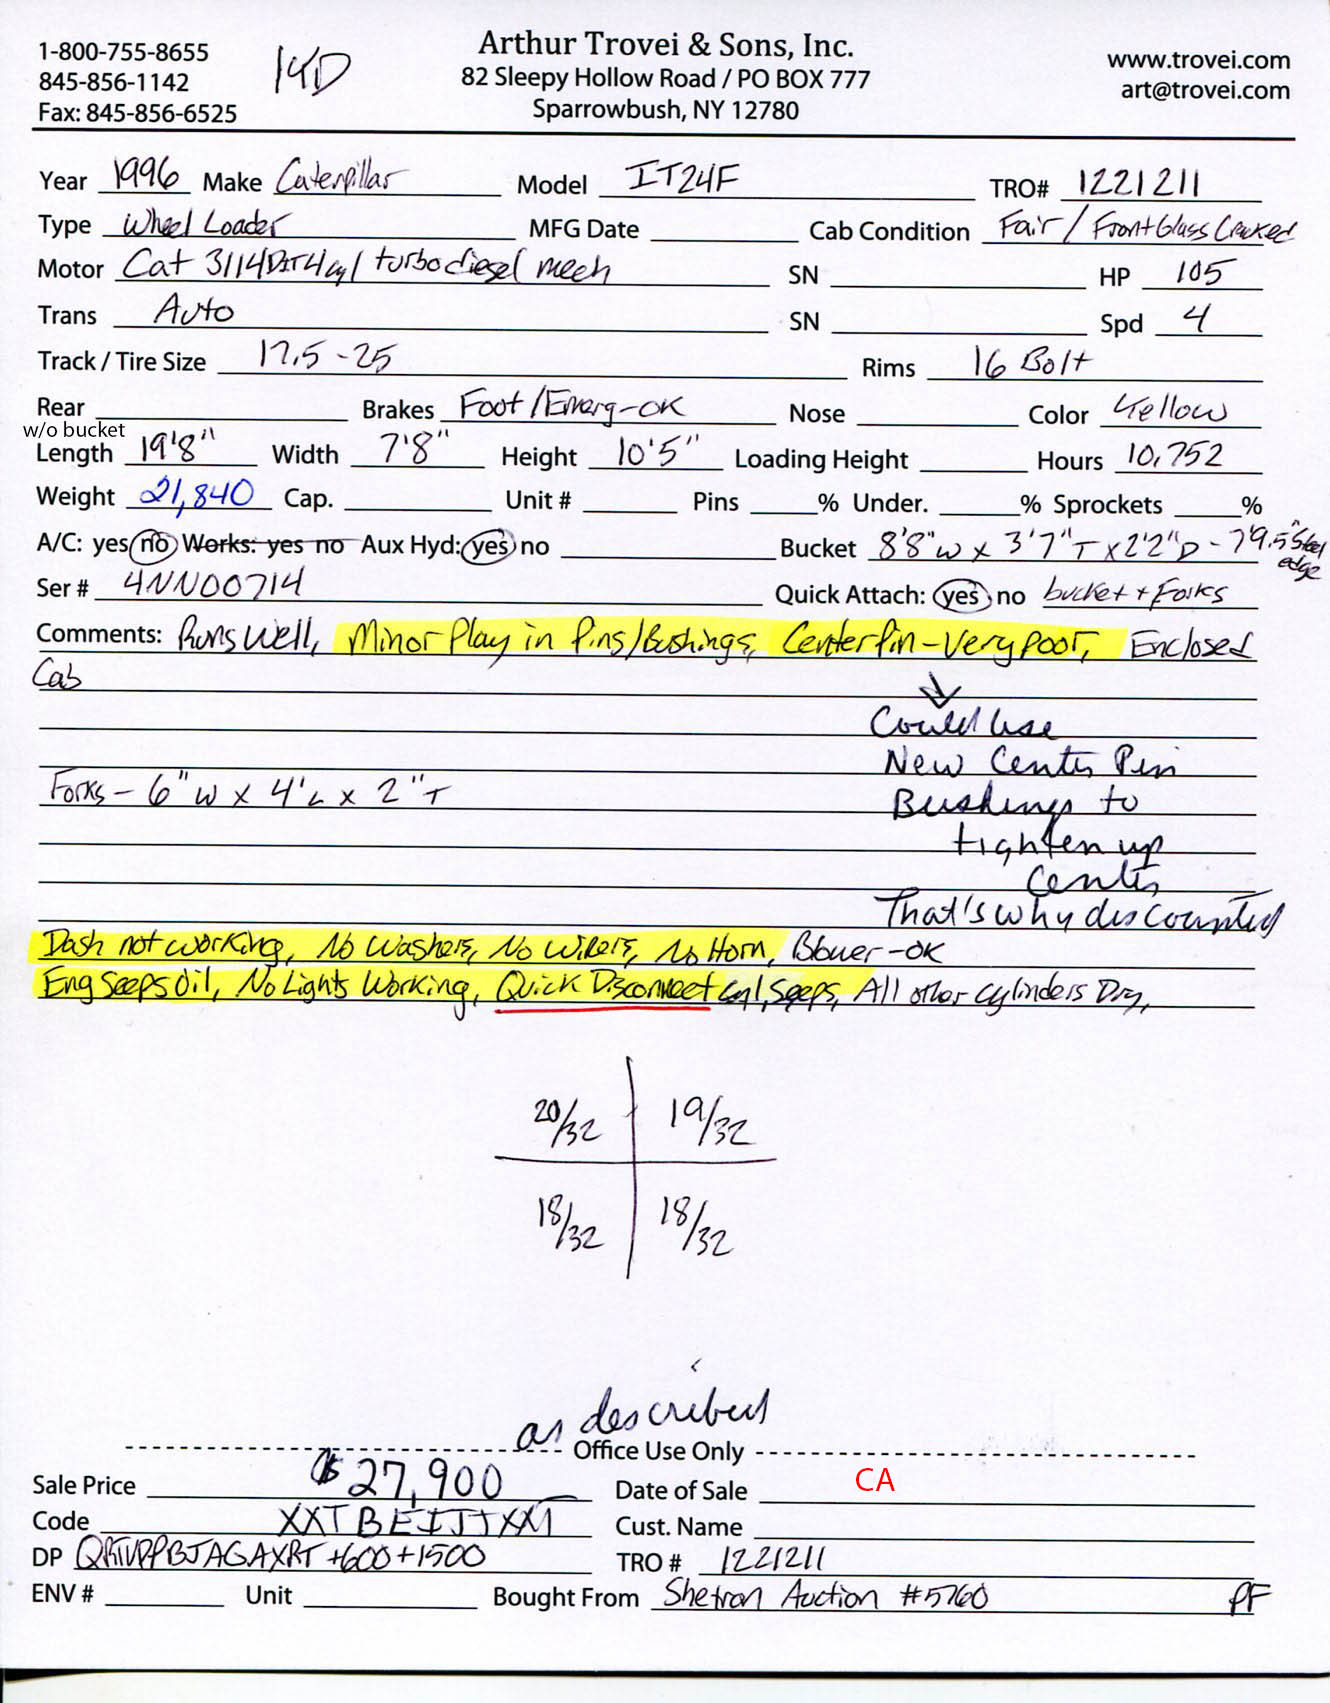 1-800-755-8655
845-856-1142
Fax: 845-856-6525
14D
Arthur Trovei & Sons, Inc.
82 Sleepy Hollow Road / PO BOX 777
Sparrowbush, NY 12780
www.trovei.com
art@trovei.com
Year 1996 Make Caterpillar Model IT24F TRO# 1221211
Type Wheel Loader MFG Date Cab Condition Fair / Front Glass Cracked
Motor Cat 3114DIT 4cyl turbo diesel mech SN HP 105
Trans Auto SN Spd 4
Track / Tire Size 17.5-25 Rims 16 Bolt
Rear Brakes Foot/Emerg-OK Nose Color Yellow
w/o bucket
Length 19'8" Width 7'8" Height 10'5" Loading Height Hours 10,752
Weight 21,840 Cap. Unit # Pins % Under. % Sprockets %
A/C: yes no Works: yes no Aux Hyd: yes no Bucket 8'8"W x 3'7"T x 2'2"D - 7'9.5" Steel edge
Ser # 4NN00714 Quick Attach: yes no bucket + Forks
Comments: Runs Well, Minor Play in Pins/Bushings, Center Pin-Very poor, Enclosed
Cab
Could use
New Center Pin
Forks - 6"W x 4'L x 2"T
Bushings to
tighten up
Center
That's why discounted
Dash not working, No Washers, No Wipers, No Horn, Blower-OK
Eng Seeps Oil, No Lights Working, Quick Disconnect cyl, Seeps, All other cylinders Dry,
20/32 19/32
18/32 18/32
as described
Office Use Only
Sale Price $27,900 Date of Sale CA
Code XXTBEIJJXXM Cust. Name
DP +600+1500 TRO # 1221211
ENV # Unit Bought From Shetron Auction #5760 PF